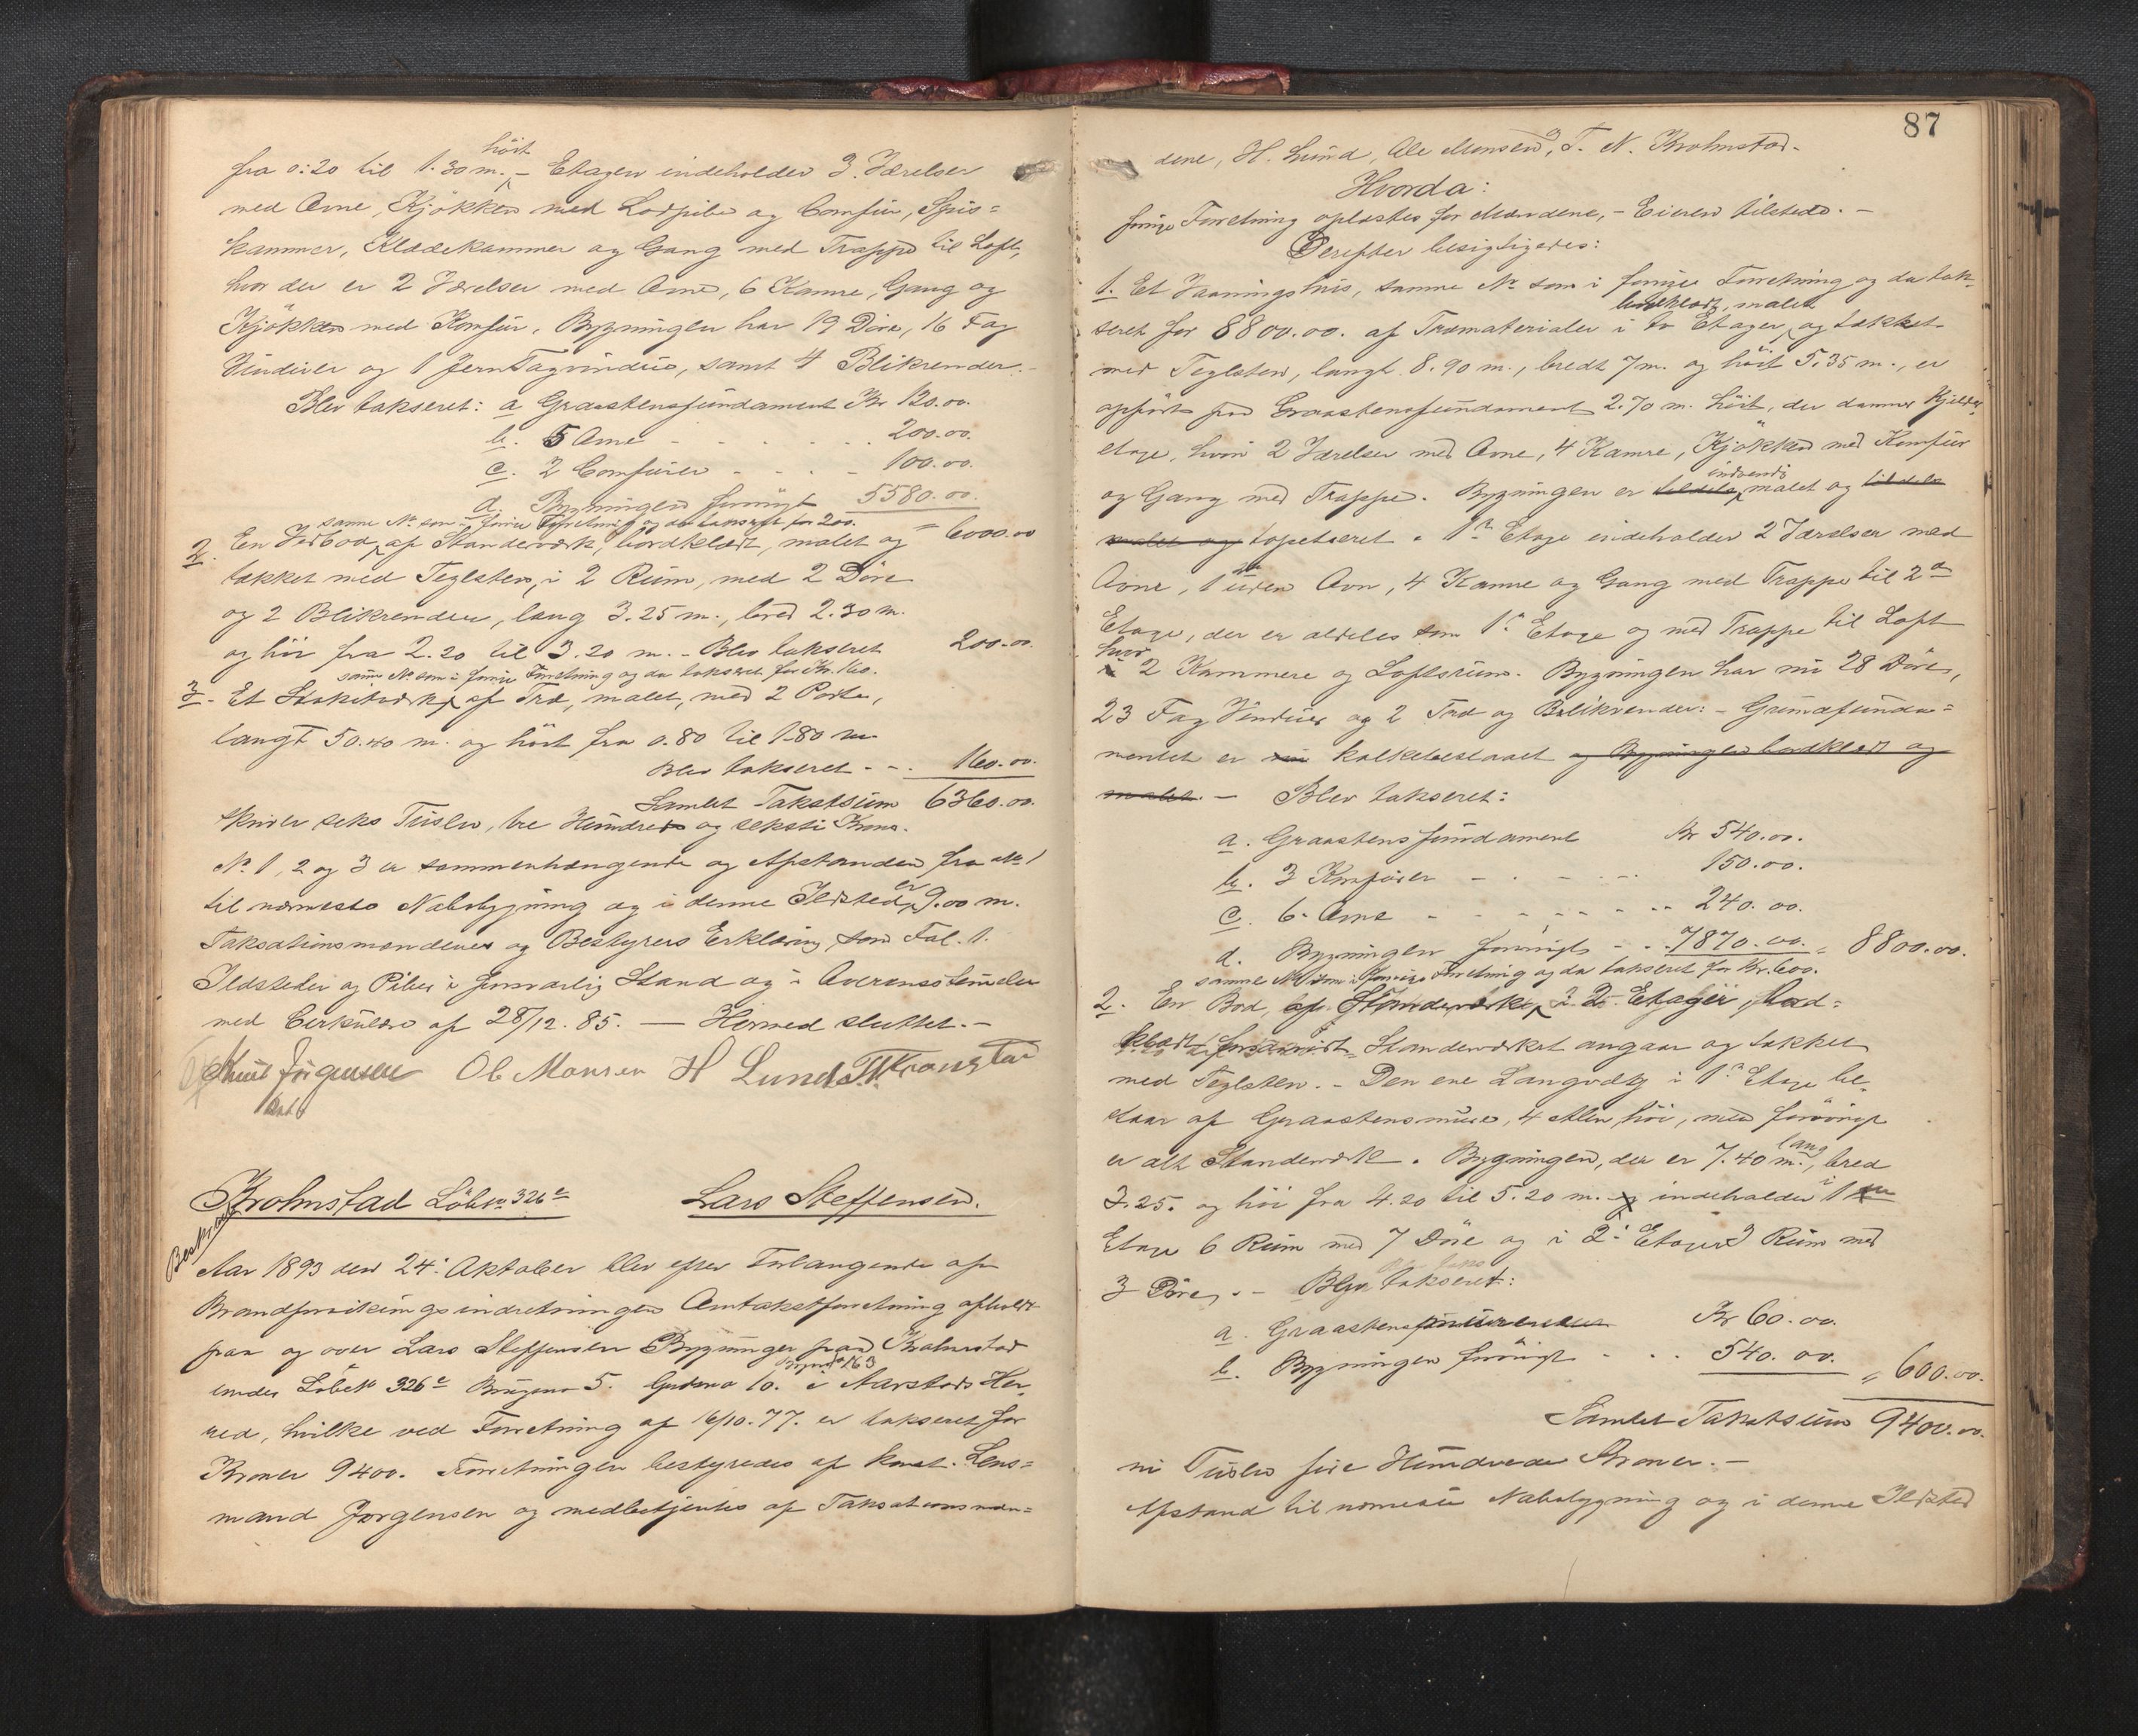 fra 0.20 til 1.30 m. höit - Etagen indeholder 3 Værelser
med Ovne, Kjökken med Lodpibe og Comfur, Spis=
kammer, Klædekammer og Gang med Trappe til Loft,
hvor der er 2 Værelser med Ovne, 6 Kamre, Gang og
Kjökken med Komfur. Bygningen har 19 Döre, 16 Fag
Vinduer og 1 Jern Tagvindue, samt 4 Blikrender. -
Blev takseret: a Graastensfundament Kr 120.00.
b. 5 Ovne - - - - 200.00.
c. 2 Comfurer - - - - 100.00.
d. Bygningen forövrigt 5580.00.
= 6000.00
samme No som i forrige Forretning og da takseret for 200.
2. En Vedbod, af Standerværk, bordklædt, malet og
tækket med Teglsten, i 2 Rum, med 2 Döre
og 2 Blikrender, lang 3.25 m., bred 2.30 m.
og höi fra 2.20 til 3.20 m. - Blev takseret 200.00.
samme No som i forrige Forretning og da takseret for Kr. 160.
3. Et Stakitværk, af Træ, malet, med 2 Porte,
langt 50.40 m. og höit fra 0.80 til 1.80 m.
Blev takseret - - . 160.00.
Samlet Takstsum 6360.00.
skriver seks Tusen, tre Hundrede og seksti Kroner.
No 1, 2 og 3 er sammenhængende og Afstanden fra No 1
til nærmeste Nabobygning og i denne Ildsted er 9.00 m.
Taksationsmændenes og Bestyrers Erklæring som Fol. 1.
Ildsteder og Piber i forsvarlig Stand og i Overensstemmelse
med Cirkulære af 28/12. 85. — Hermed sluttet. -
Knut Jörgensen Ole Monsen H Lund T N Kronstad
Krohnstad Löbeno 326e Lars Steffensen.
Beskrevet
Aar 1893 den 24. Oktober blev efter Forlangende af
Brandforsikringsindretningen Omtakstforretning afholdt
paa og over Lars Steffensen Bygninger paa Krohnstad
under Löbeno 326e Brugsno 5. Gardsno 10. Bygno 163 i Aarstads Her-
red, hvilke ved Forretning af 16/10. 77. er takseret for
Kroner 9400. Forretningen bestyredes af konst. Lens=
mand Jørgensen og medbetjentes af Taksationsmæn=
87
dene, H. Lund, Ole Monsen, T. N. Krohnstad.
Hvorda:
forrige Forretning oplæstes for Mændene, - Eieren tilstede. -
Derefter besigtigedes:
1. Et Vaaningshus, samme No som i forrige Forretning og da tak-
seret for 8800.00. af Træmaterialer i to Etager, bordklædt, malet og tækket
med Teglsten, langt 8.90 m., bredt 7 m. og höit 5.35 m., er
opfört paa Graastensfundament 2.70 m. höit, der danner Kjelder
etage, hvori 2 Værelser med Ovne, 4 Kamre, Kjökken med Komfur
og Gang med Trappe. Bygningen er tildels indvendig malet og tildels
malet og tapetseret. 1ste Etage indeholder 2 Værelser med
Ovne, 1 uden Ovn, 4 Kamre og Gang med Trappe til 2den
Etage, der er aldeles som 1ste Etage og med Trappe til Loft
hvor 2 Kammere og Loftsrum. Bygningen har nu 28 Döre,
23 Fag Vinduer og 2 Træ og Blikrender. - Grundfunda=
mentet er nu kalkbeslaaet og Bygningen bordklædt og
malet. - Blev takseret:
a. Graastensfundament Kr 540.00.
b. 3 Komfurer - - - - 150.00.
c. 6 Ovne - - - - - 240.00.
d. Bygningen forövrigt - - 7870.00. = 8800.00.
samme No som i forrige Forretning og da takseret for Kr. 600.
2. En Bod, af Standerværk, i 2 Etager, bord=
klædt forsaavidt Standerværket angaar og tækket
med Teglsten. - Den ene Langvæg i 1ste Etage be-
staar af Graastensmure, 4 Alen höi, med forövrigt
er alt Standerværk. Bygningen, der er 7.40 m. lang, bred
3.25. og höi fra 4.20 til 5.20 m. og indeholder i 1ste
Etage 6 Rum med 7 Döre og i 2. Etage 3 Rum med
3 Döre. - Blev takseret:
a. Graastensmuren Kr 60.00.
b. Bygningen forövrigt - . . 540.00.
" 600.00.
Samlet Takstsum 9400.00.
ni Tusen fire Hundrede Kroner. -
Afstand til nærmeste Nabobygning og i denne Ildsted